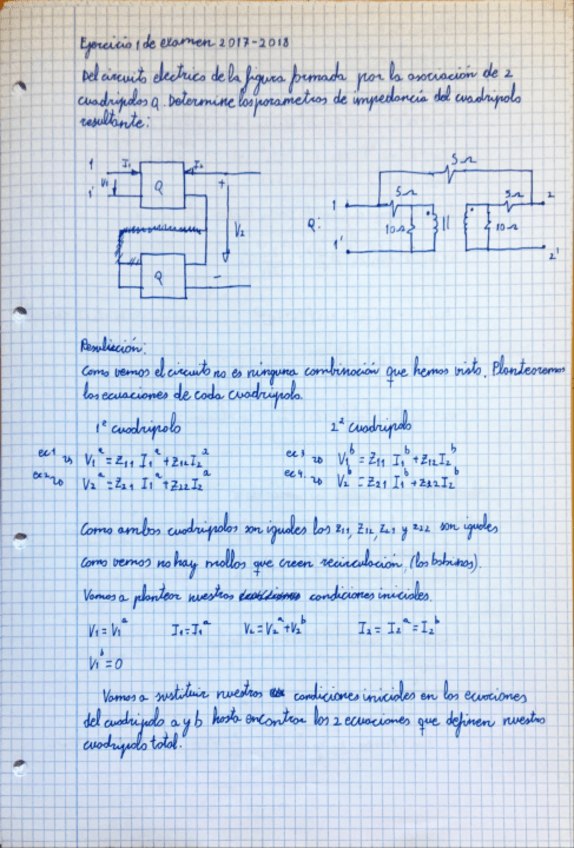 Ejercicio 1 de examen 2017-2018
Del circuito electrico de la figura formada por la asociación de 2
cuadripolos Q. Determine los parametros de impedancia del cuadripolo
resultante:
1 I₁ I₂
V₁ Q +
1'
V₂
Q -
Q:
5Ω
1 5Ω 5Ω 2
10Ω 10Ω
1' 2'
Resolución:
Como vemos el circuito no es ninguna combinación que hemos visto. Plantearemos
las ecuaciones de cada cuadripolo.
1º cuadripolo 2º cuadripolo
ec1 V₁ᵃ = Z₁₁ I₁ᵃ + Z₁₂ I₂ᵃ ec3 V₁ᵇ = Z₁₁ I₁ᵇ + Z₁₂ I₂ᵇ
ec2 V₂ᵃ = Z₂₁ I₁ᵃ + Z₂₂ I₂ᵃ ec4 V₂ᵇ = Z₂₁ I₁ᵇ + Z₂₂ I₂ᵇ
Como ambos cuadripolos son iguales los Z₁₁, Z₁₂, Z₂₁ y Z₂₂ son iguales
como vemos no hay mallas que creen recirculación, (los bobinas).
Vamos a plantear nuestras condiciones iniciales.
V₁ = V₁ᵃ I₁ = I₁ᵃ V₂ = V₂ᵃ + V₂ᵇ I₂ = I₂ᵃ = I₂ᵇ
V₁ᵇ = 0
Vamos a sustituir nuestras condiciones iniciales en las ecuaciones
del cuadripolo a y b hasta encontrar las 2 ecuaciones que definen nuestro
cuadripolo total.